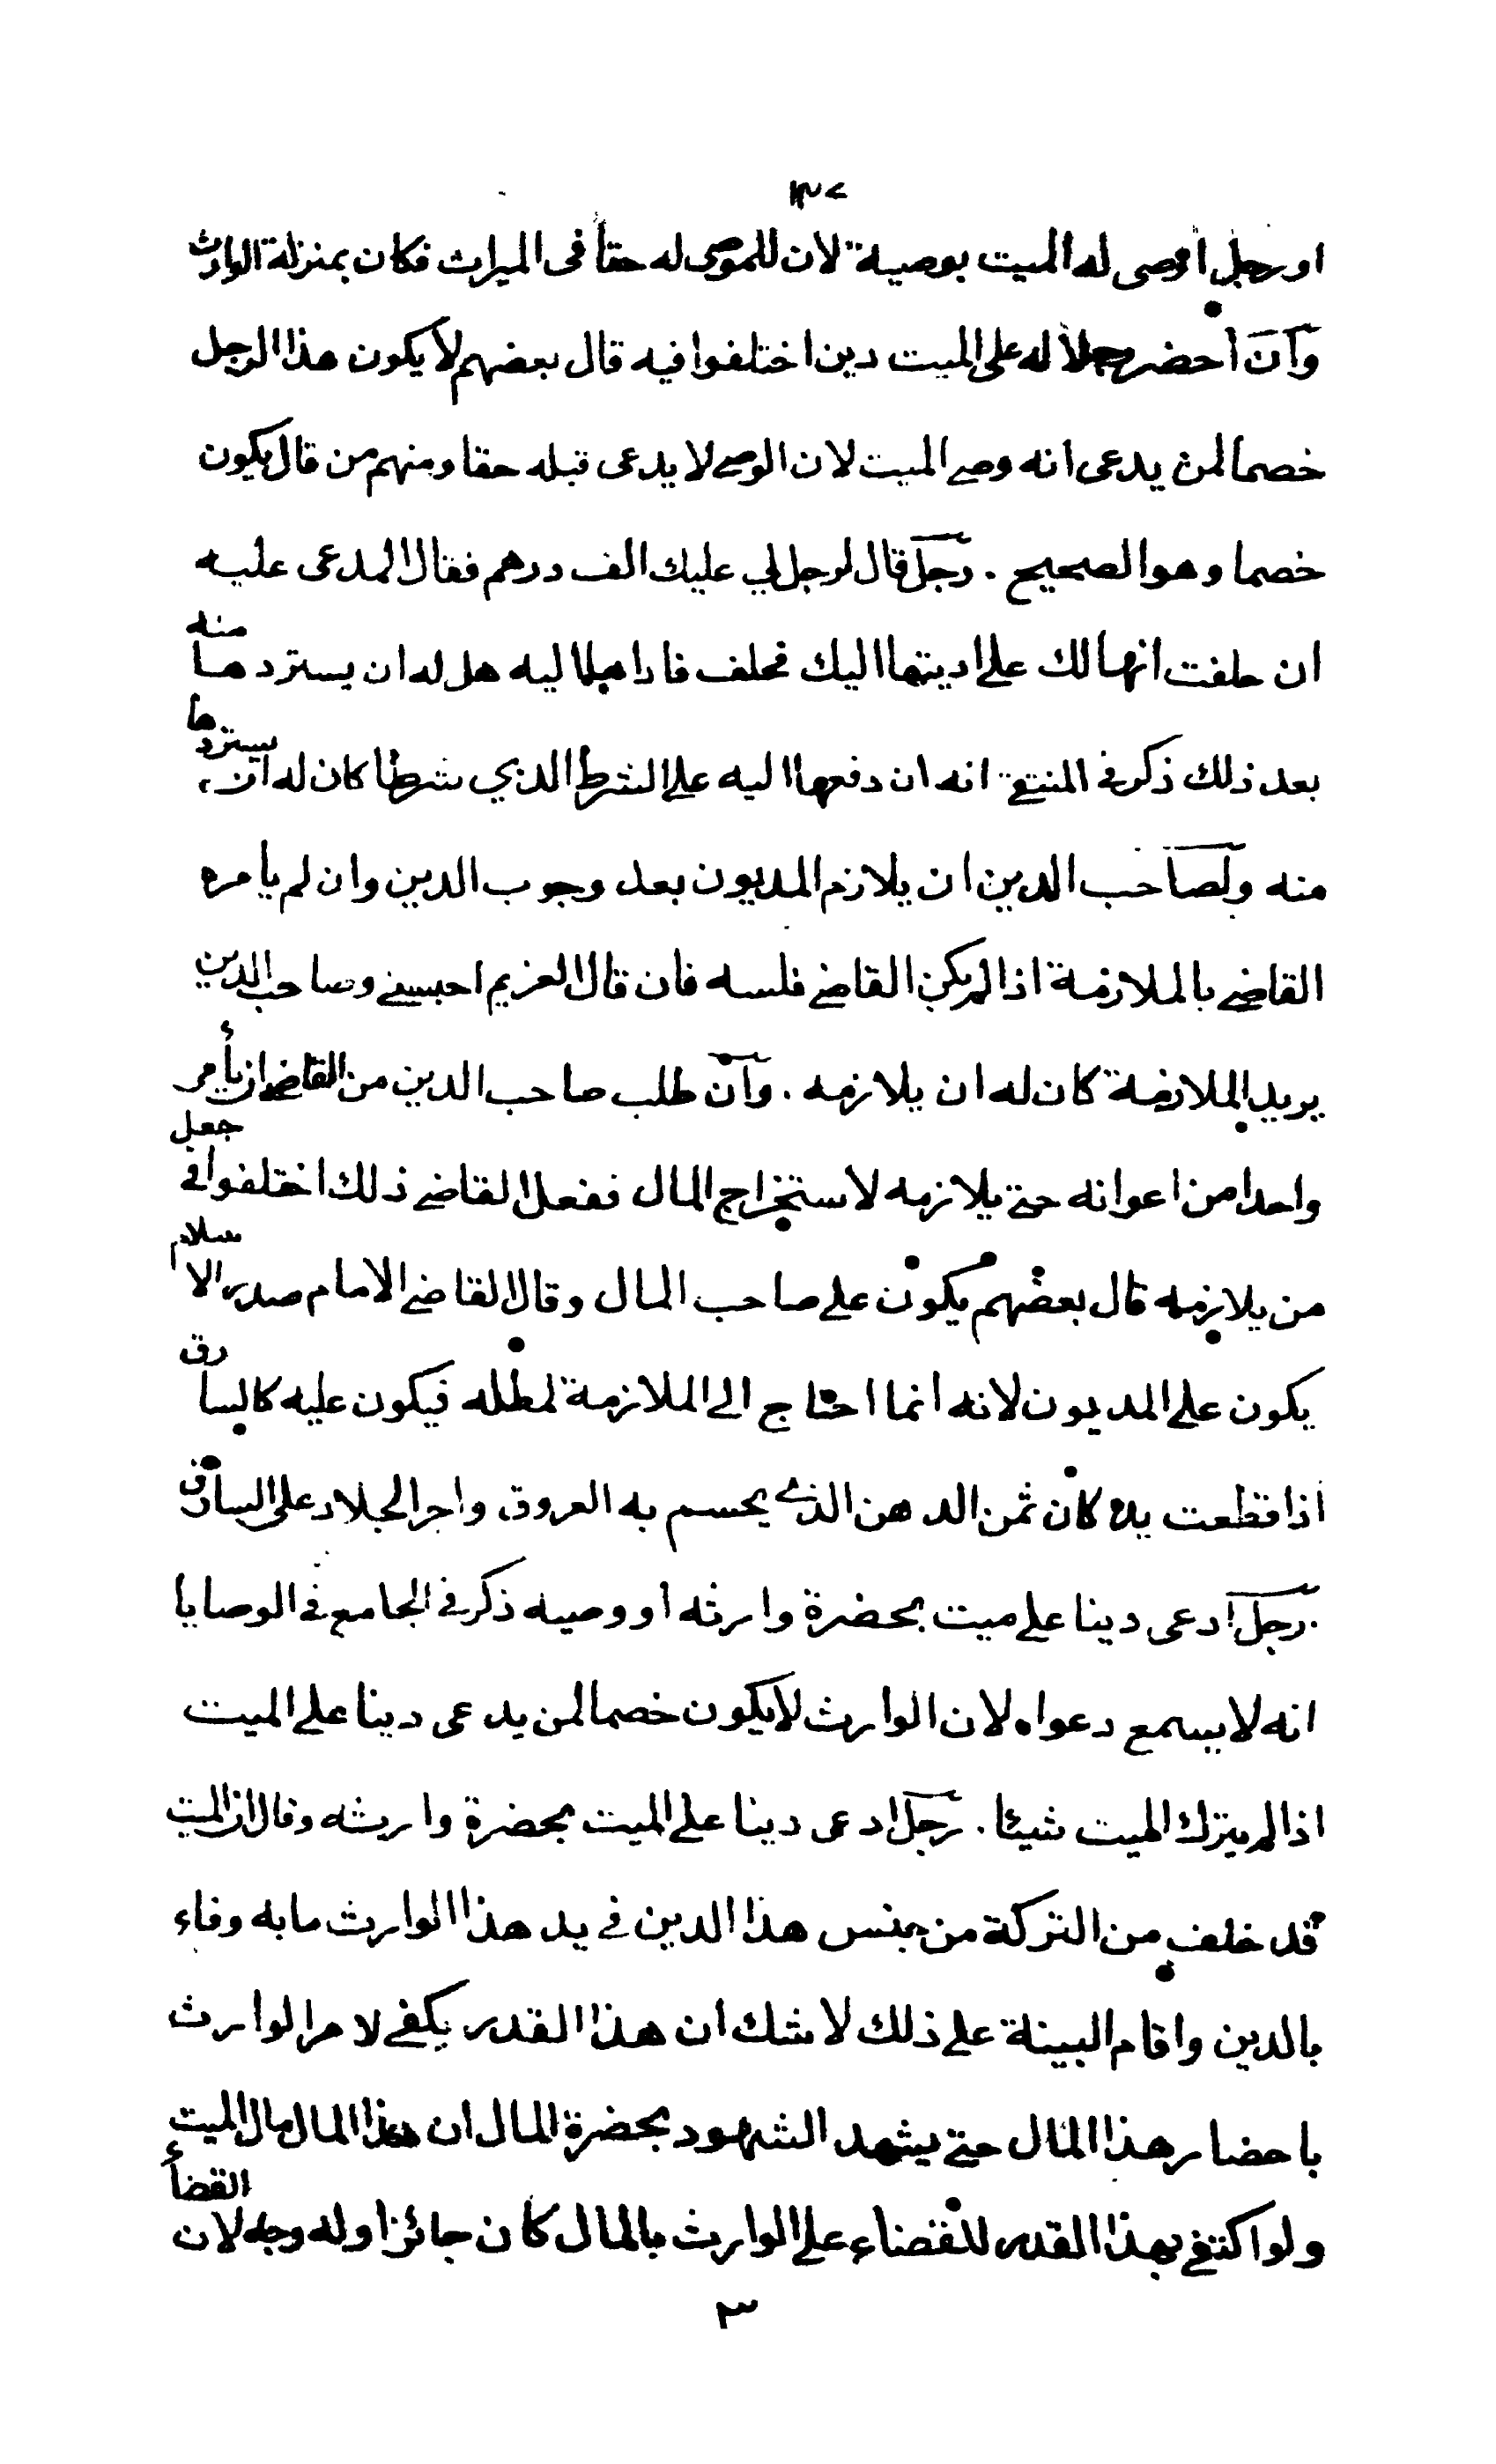 او رجل اوصى له الميت بوصية لان للموصى له حقا فى الميراث فكان بمنزلة الوارث
وان احضر رجلا له على الميت دين اختلفوا فيه قال بعضهم لا يكون هذا الرجل
خصما لمن يدعى انه وصي الميت لان الوصي لا يدعى قبله حقا ومنهم من قال يكون
خصما وهو الصحيح . رجل قال لرجل لي عليك الف درهم فقال المدعى عليه
ان حلفت انها لك على اديتها اليك فحلف فاداها اليه هل له ان يستردها منه
بعد ذلك ذكر في المنتقى انه ان دفعها اليه على الشرط الذي شرط كان له ان يستردها
منه ولصاحب الدين ان يلازم المديون بعد وجوب الدين وان لم يأمره
القاضي بالملازمة اذا لم يكن القاضي فلسه فان قال الغريم احبسني وصاحب الدين
يريد الملازمة كان له ان يلازمه . وان طلب صاحب الدين من القاضي ان يأمر
واحدا من اعوانه حتى يلازمه لاستخراج المال ففعل القاضي ذلك اختلفوا في جعل
من يلازمه قال بعضهم يكون على صاحب المال وقال القاضي الامام صدر الاسلام
يكون على المديون لانه انما احتاج الى الملازمة لمطله فيكون عليه كالسارق
اذا قطعت يده كان ثمن الدهن الذي يحسم به العروق واجر الجلاد على السارق
رجل ادعى دينا على ميت بحضرة وارثه او وصيه ذكر في الجامع في الوصايا
انه لا يسمع دعواه لان الوارث لا يكون خصما لمن يدعى دينا على الميت
اذا لم يترك الميت شيئا . رجل ادعى دينا على الميت بحضرة وارثه وقال ان الميت
قد خلف من التركة من جنس هذا الدين في يد هذا الوارث ما به وفاء
بالدين واقام البينة على ذلك لا شك ان هذا القدر يكفي لامر الوارث
باحضار هذا المال حتى يشهد الشهود بحضرة المال ان هذا المال مال الميت
ولو اكتفى بهذا القدر للقضاء على الوارث بالمال كان جائزا وله وجه لان القضاء
٣